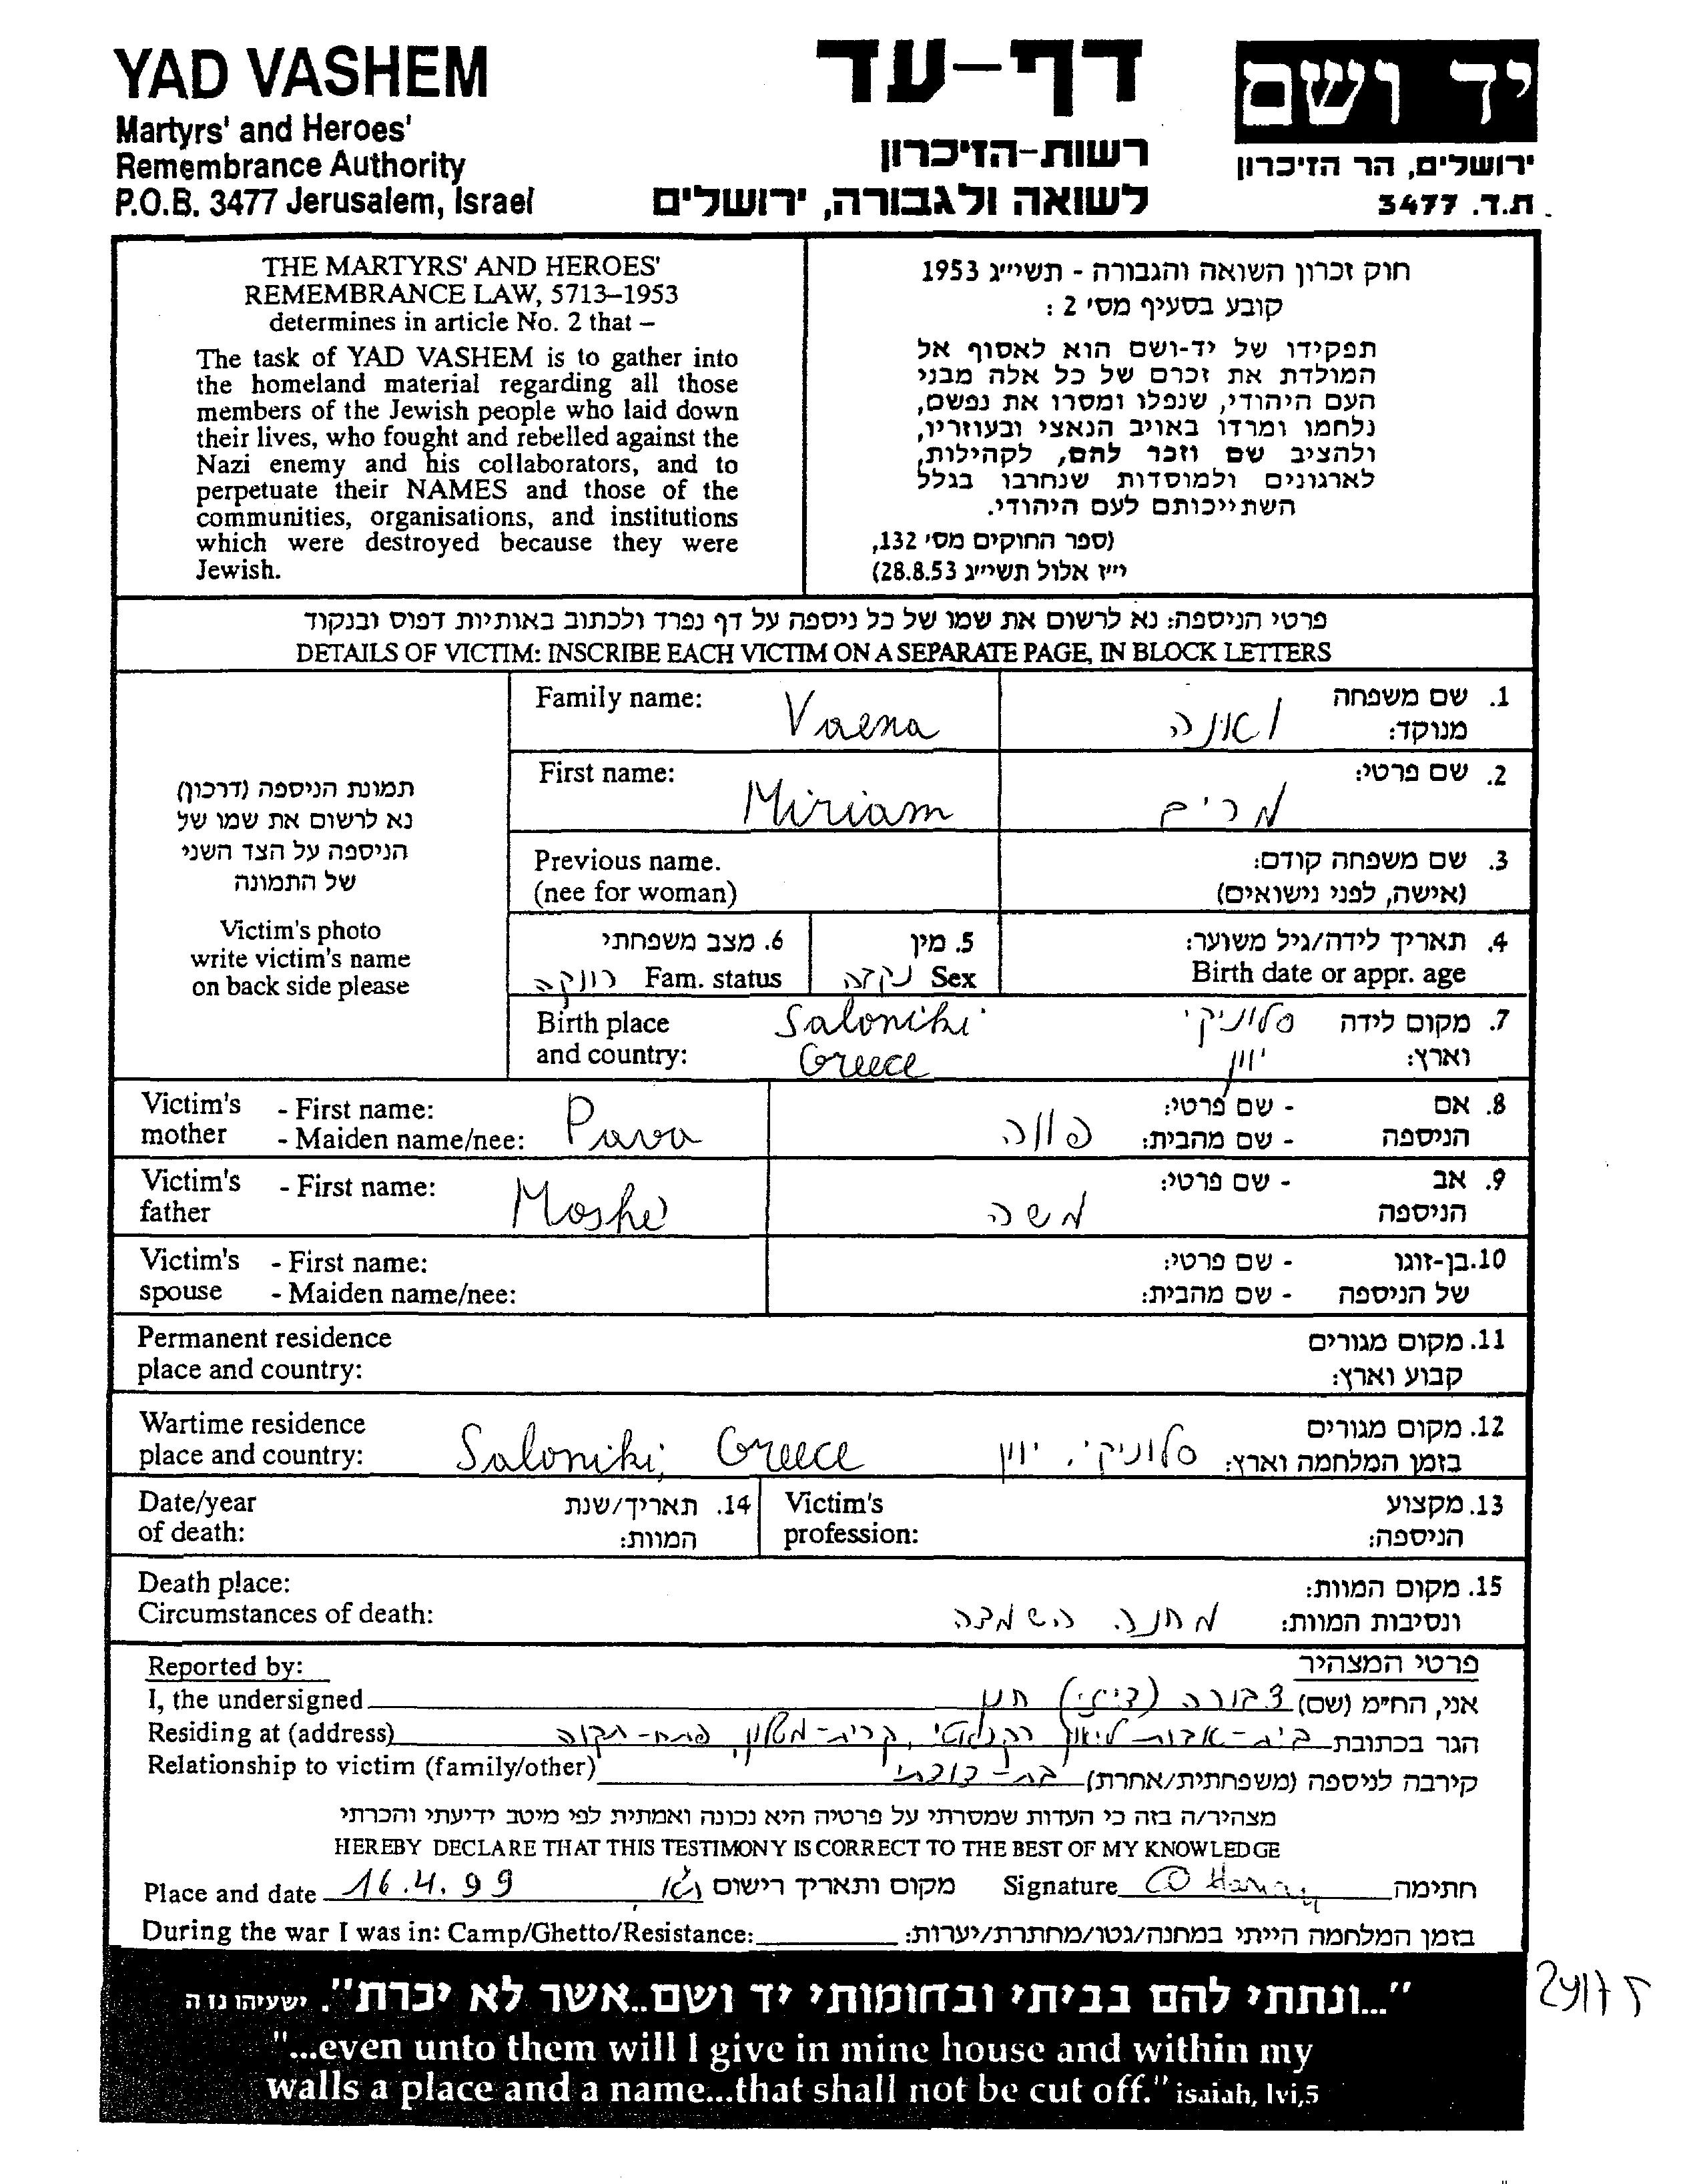 YAD VASHEM
Martyrs' and Heroes'
Remembrance Authority
P.O.B. 3477 Jerusalem, Israel
דף-עד
רשות-הזיכרון
לשואה ולגבורה, ירושלים
יד ושם
ירושלים, הר הזיכרון
ת.ד. 3477
THE MARTYRS' AND HEROES'
REMEMBRANCE LAW, 5713–1953
determines in article No. 2 that –
The task of YAD VASHEM is to gather into
the homeland material regarding all those
members of the Jewish people who laid down
their lives, who fought and rebelled against the
Nazi enemy and his collaborators, and to
perpetuate their NAMES and those of the
communities, organisations, and institutions
which were destroyed because they were
Jewish.
חוק זכרון השואה והגבורה - תשי״ג 1953
קובע בסעיף מס׳ 2 :
תפקידו של יד-ושם הוא לאסוף אל
המולדת את זכרם של כל אלה מבני
העם היהודי, שנפלו ומסרו את נפשם,
נלחמו ומרדו באויב הנאצי ובעוזריו,
ולהציב שם וזכר להם, לקהילות,
לארגונים ולמוסדות שנחרבו בגלל
השתייכותם לעם היהודי.
(ספר החוקים מס׳ 132,
י״ז אלול תשי״ג 28.8.53)
פרטי הניספה: נא לרשום את שמו של כל ניספה על דף נפרד ולכתוב באותיות דפוס ובנקוד
DETAILS OF VICTIM: INSCRIBE EACH VICTIM ON A SEPARATE PAGE, IN BLOCK LETTERS
תמונת הניספה (דרכון)
נא לרשום את שמו של
הניספה על הצד השני
של התמונה
Victim's photo
write victim's name
on back side please
Family name: Vaena
1. שם משפחה
מנוקד: ואנה
First name: Miriam
2. שם פרטי: מרים
Previous name.
(nee for woman)
3. שם משפחה קודם:
(אישה, לפני נישואים)
6. מצב משפחתי
Fam. status רווקה
5. מין
Sex נקבה
4. תאריך לידה/גיל משוער:
Birth date or appr. age
Birth place Saloniki
and country: Greece
7. מקום לידה סלוניקי
וארץ: יוון
Victim's - First name: Pava
mother - Maiden name/nee:
8. אם - שם פרטי: פווה
הניספה - שם מהבית:
Victim's - First name: Moshe
father
9. אב - שם פרטי: משה
הניספה
Victim's - First name:
spouse - Maiden name/nee:
10. בן-זוגו - שם פרטי:
של הניספה - שם מהבית:
Permanent residence
place and country:
11. מקום מגורים
קבוע וארץ:
Wartime residence
place and country: Saloniki, Greece
12. מקום מגורים
בזמן המלחמה וארץ: סלוניקי, יוון
Date/year
of death:
14. תאריך/שנת
המוות:
Victim's
profession:
13. מקצוע
הניספה:
Death place:
Circumstances of death:
15. מקום המוות:
ונסיבות המוות: מחנה השמדה
Reported by:
פרטי המצהיר
I, the undersigned
אני, הח״מ (שם) דבורה (דיזי) חנן
Residing at (address)
הגר בכתובת בית-אבות ליאון רקנאטי, קרית-מטלון, פתח-תקוה
Relationship to victim (family/other)
קירבה לניספה (משפחתית/אחרת) בת-דודתי
מצהיר/ה בזה כי העדות שמסרתי על פרטיה היא נכונה ואמתית לפי מיטב ידיעתי והכרתי
HEREBY DECLARE THAT THIS TESTIMONY IS CORRECT TO THE BEST OF MY KNOWLEDGE
Place and date 16.4.99 מקום ותאריך רישום
Signature חתימה
During the war I was in: Camp/Ghetto/Resistance:
בזמן המלחמה הייתי במחנה/גטו/מחתרת/יערות:
"...ונתתי להם בביתי ובחומותי יד ושם..אשר לא יכרת". ישעיהו נו ה
"...even unto them will I give in mine house and within my
walls a place and a name...that shall not be cut off." isaiah, lvi,5